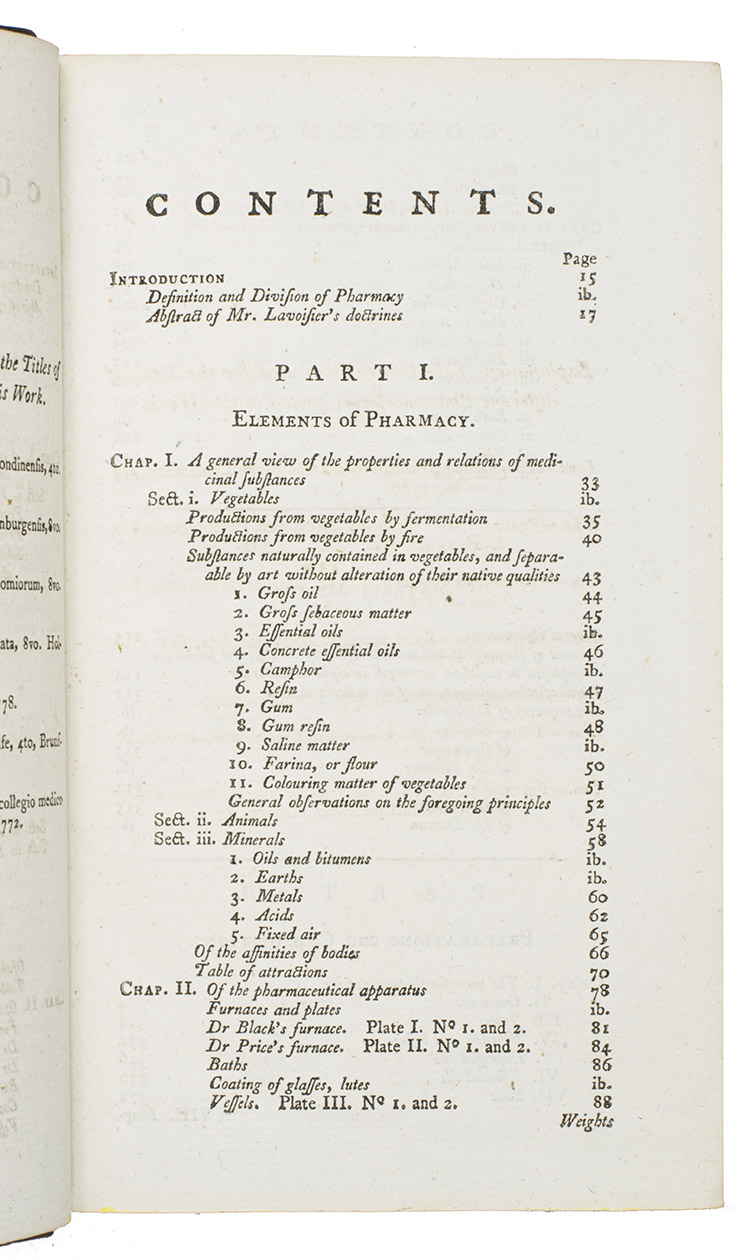 the Titles of
is Work.
ondinensis, 4to.
nburgensis, 8vo.
omiorum, 8vo.
ata, 8vo. Hol-
78.
fe, 4to, Brunf-
collegio medico
772.
CONTENTS.
Page
INTRODUCTION 15
Definition and Diviſion of Pharmacy ib.
Abſtract of Mr. Lavoiſier's doctrines 17
PART I.
ELEMENTS of PHARMACY.
CHAP. I. A general view of the properties and relations of medi-
cinal ſubſtances 33
Sect. i. Vegetables ib.
Productions from vegetables by fermentation 35
Productions from vegetables by fire 40
Subſtances naturally contained in vegetables, and ſepara-
able by art without alteration of their native qualities 43
1. Groſs oil 44
2. Groſs ſebaceous matter 45
3. Eſſential oils ib.
4. Concrete eſſential oils 46
5. Camphor ib.
6. Reſin 47
7. Gum ib.
8. Gum reſin 48
9. Saline matter ib.
10. Farina, or flour 50
11. Colouring matter of vegetables 51
General obſervations on the foregoing principles 52
Sect. ii. Animals 54
Sect. iii. Minerals 58
1. Oils and bitumens ib.
2. Earths ib.
3. Metals 60
4. Acids 62
5. Fixed air 65
Of the affinities of bodies 66
Table of attractions 70
CHAP. II. Of the pharmaceutical apparatus 78
Furnaces and plates ib.
Dr Black's furnace. Plate I. Nº 1. and 2. 81
Dr Price's furnace. Plate II. Nº 1. and 2. 84
Baths 86
Coating of glaſſes, lutes ib.
Veſſels. Plate III. Nº 1. and 2. 88
Weights